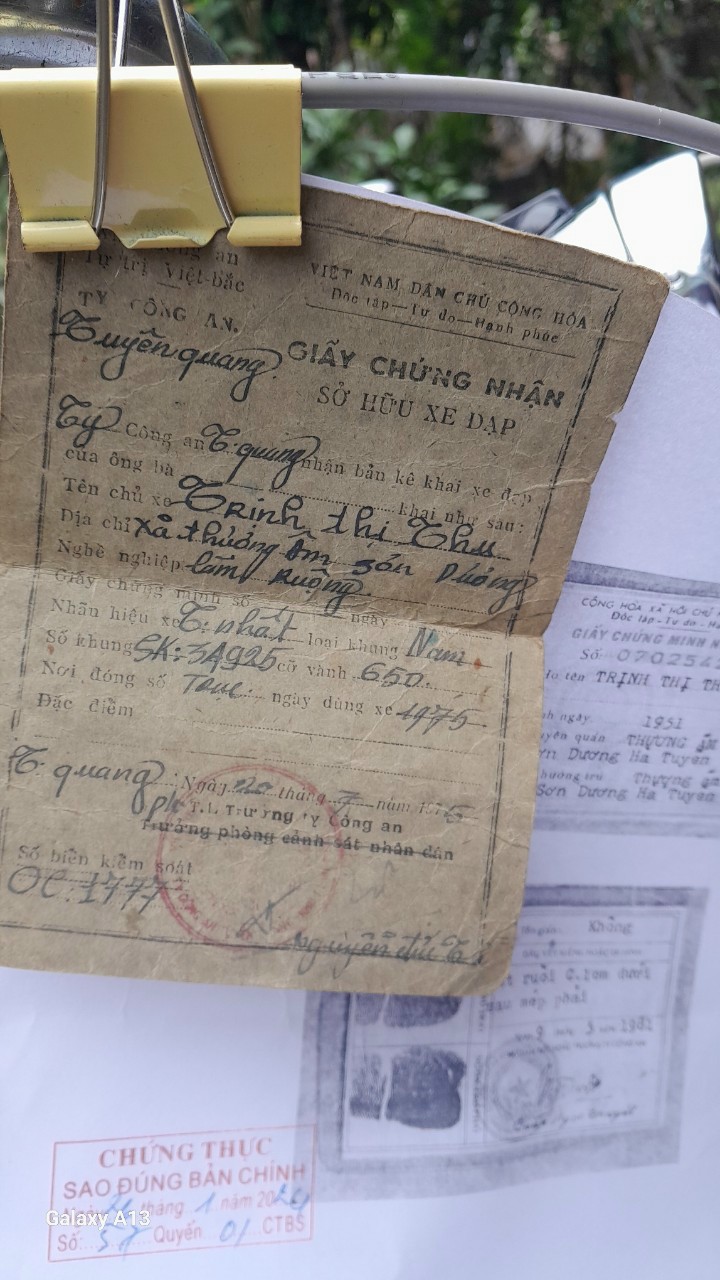 Tự trị Việt-bắc
TY CÔNG AN.
Tuyên quang
VIỆT NAM DÂN CHỦ CỘNG HÒA
Độc lập—Tự do—Hạnh phúc
GIẤY CHỨNG NHẬN
SỞ HỮU XE ĐẠP
Ty Công an T. quang nhận bản kê khai xe đạp
của ông bà khai như sau:
Tên chủ xe Trịnh thị Thu
Địa chỉ xã thượng Ấm Sơn Dương
Nghề nghiệp làm ruộng.
Giấy chứng minh số ngày
Nhãn hiệu xe T. nhất loại khung Nam
Số khung SK: 3A925 cỡ vành 650
Nơi đóng số ngày dùng xe 1975
Đặc điểm
T. quang, Ngày 20 tháng 7 năm
T.L Trưởng ty Công an
Trưởng phòng cảnh sát nhân dân
Số biển kiểm soát
OC. 1777
Nguyễn đức
CỘNG HÒA XÃ HỘI CHỦ
Độc lập - Tự do - Hạ
GIẤY CHỨNG MINH N
Số 070254
Họ tên TRỊNH THỊ TH
nh ngày 1951
yên quán THƯỢNG ẤM
Sơn Dương Hà Tuyên
thường trú Thượng ấm
Sơn Dương Hà Tuyên
Không
t ruồi C.1cm dưới
sau mép phải
9 3 1981
CHỨNG THỰC
SAO ĐÚNG BẢN CHÍNH
Ngày tháng 1 năm 20
Số: 57 Quyển 01 CTBS
Galaxy A13